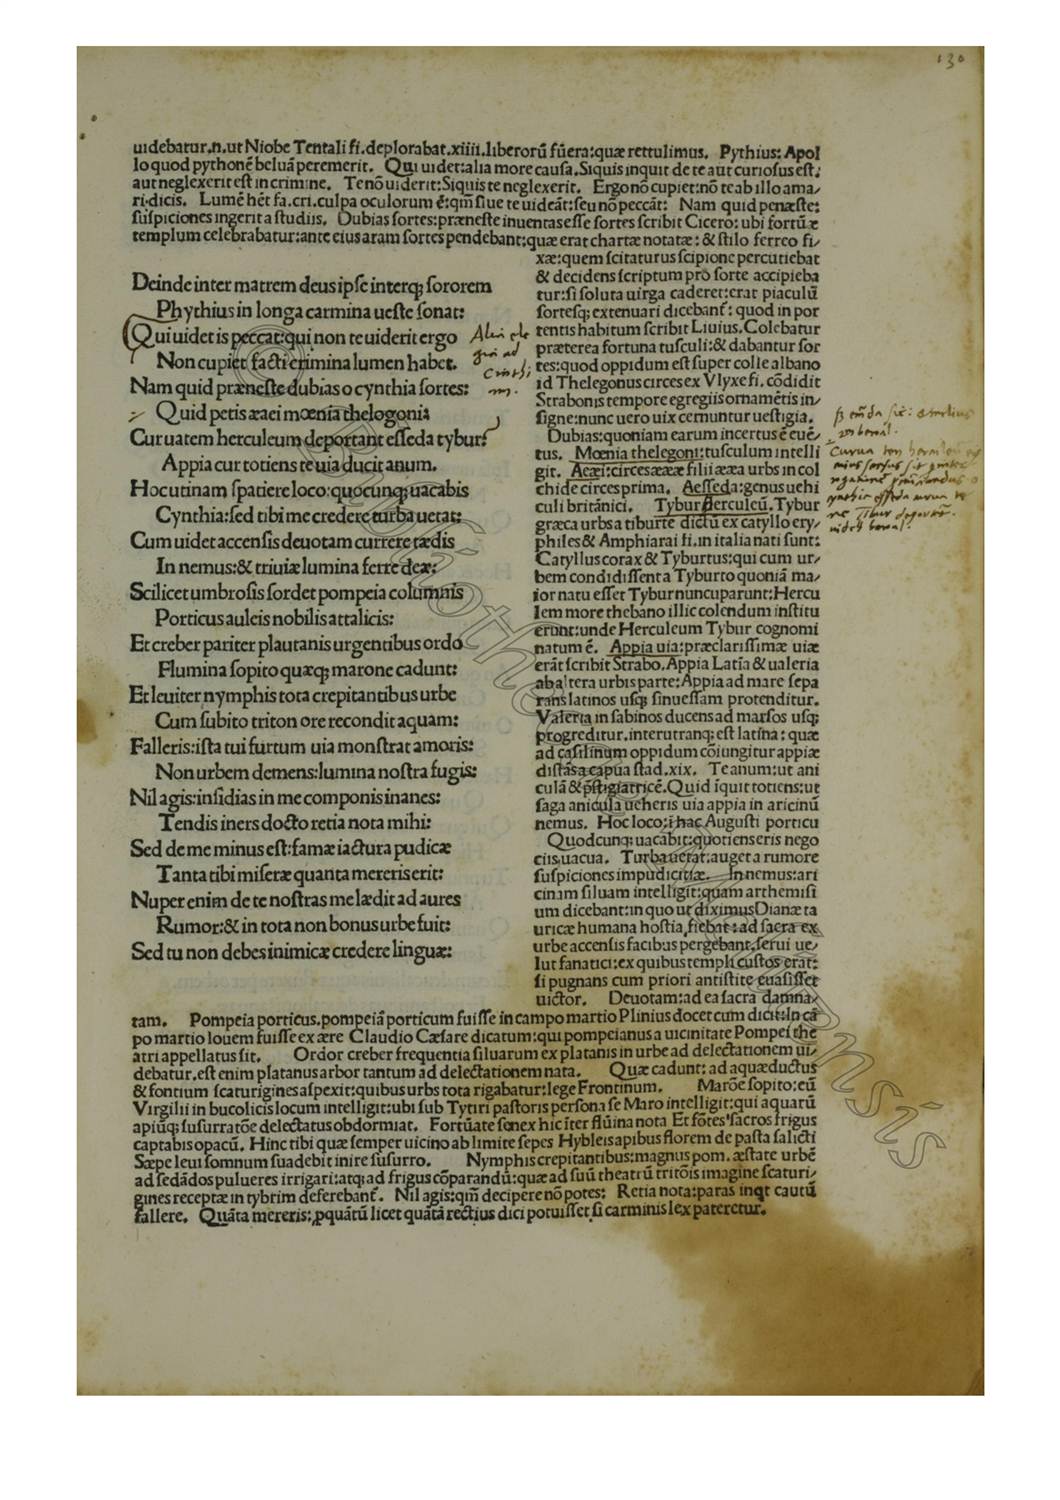 130
uidebatur.n.ut Niobe Tentali fi.deplorabat.xiiii.liberorū fūera:quæ rettulimus. Pythius: Apol
lo quod pythonē beluā peremerit. Qui uidet:alia more causa. Siquis inquit de te aut curiosus est:
aut neglexerit est in crimine. Te nō uiderit:Siquis te neglexerit. Ergo nō cupiet:nō te ab illo ama/
ri dicis. Lumē hēt fa.cri.culpa oculorum ē:qm̄ siue te uideāt:seu nō peccāt: Nam quid penæste:
suspiciones ingerit a studiis. Dubias sortes:præneste inuentas esse sortes scribit Cicero: ubi fortūæ
templum celebrabatur:ante eius aram sortes pendebant:quæ erat chartæ notatæ: & stilo ferreo fi/
Deinde inter matrem deus ipse interq; sororem
Phythius in longa carmina ueste sonat:
Qui uidet is peccat:qui non te uiderit ergo
Non cupiet facti crimina lumen habet.
Nam quid præneste dubias o cynthia sortes:
Quid petis æaei mœnia thelogonia
Cur uatem herculeum deportant esseda tybur:
Appia cur totiens te uia ducit anum.
Hoc utinam spatiere loco:quocunq; uacabis
Cynthia:sed tibi me credere turba uetat:
Cum uidet accensis deuotam currere tædis
In nemus:& triuiæ lumina ferre deæ:
Scilicet umbrosis sordet pompeia columnis
Porticus auleis nobilis attalicis:
Et creber pariter plautanis urgentibus ordo
Flumina sopito quæq; marone cadunt:
Et leuiter nymphis tota crepitantibus urbe
Cum subito triton ore recondit aquam:
Falleris:ista tui furtum uia monstrat amoris:
Non urbem demens:lumina nostra fugis:
Nil agis:insidias in me componis inanes:
Tendis iners docto retia nota mihi:
Sed de me minus est:famæ iactura pudicæ
Tanta tibi miseræ quanta mereris erit:
Nuper enim de te nostras me lædit ad aures
Rumor:& in tota non bonus urbe fuit:
Sed tu non debes inimicæ credere linguæ:
Alia ele
gia ad
Cinthi
am.
xæ:quem scitaturus scipione percutiebat
& decidens scriptum pro sorte accipieba
tur:si soluta uirga caderet:erat piaculū
sortesq; extenuari dicebant̄: quod in por
tentis habitum scribit Liuius. Colebatur
præterea fortuna tusculi:& dabantur sor
tes:quod oppidum est super colle albano
id Thelegonus circes ex Vlyxe fi.cōdidit
Strabonis tempore egregiis ornamētis in/
signe:nunc uero uix cernuntur uestigia.
Dubias:quoniam earum incertus ē euē/
tus. Mœnia thelegoni:tusculum intelli
git. Aeæi:circes ææææ filii æææ urbs in col
chide circes prima. Aesseda:genus uehi
culi britānici. Tybur herculeū. Tybur
græca urbs a tiburte dictū ex catyllo ery/
philes & Amphiarai fi.in italia nati sunt:
Catyllus corax & Tyburtus:qui cum ur/
bem condidissent a Tyburto quoniā ma/
ior natu esset Tybur nuncuparunt:Hercu
lem more thebano illic colendum institu
erunt:unde Herculeum Tybur cognomi
natum ē. Appia uia:præclarissimæ uiæ
erāt scribit Strabo.Appia Latīa & ualeria
ab altera urbis parte:Appia ad mare sepa
rans latinos usq; sinuessam protenditur.
Valeria in sabinos ducens ad marsos usq;
progreditur.inter utranq; est latīna: quæ
ad casilinum oppidum cōiungitur appiæ
distās a capua stad.xix. Te anum:ut ani
culā & p̄stigiatricē. Quid īquit totiens:ut
saga anicula ueheris uia appia in aricinū
nemus. Hoc loco:i hac Augusti porticu
Quodcunq; uacabit:quotiens eris nego
ciis uacua. Turba uetat:auget a rumore
suspiciones impudicitiæ. In nemus:ari
cinam siluam intelligit:quam arthemisi
um dicebant:in quo ut diximus Dianæ ta
uricæ humana hostia fiebat: ad sacra ex
urbe accensis facibus pergebant.serui ue/
lut fanatici:ex quibus templi custos erat:
si pugnans cum priori antistite euasisset
uictor. Deuotam:ad ea sacra damna/
tam. Pompeia porticus.pompeiā porticum fuisse in campo martio Plinius docet cum dicit:In cā
po martio louem fuisse ex ære Claudio Cæsare dicatum:qui pompeianus a uicinitate Pompei the
atri appellatus sit. Ordor creber frequentia siluarum ex platanis in urbe ad delectationem ui/
debatur.est enim platanus arbor tantum ad delectationem nata. Quæ cadunt: ad aquæductus
& fontium scaturigines aspexit:quibus urbs tota rigabatur:lege Frontinum. Marōe sopito:eū
Virgilii in bucolicis locum intelligit:ubi sub Tytiri pastoris persona se Maro intelligit:qui aquarū
apiūq; susurratōe delectatus obdormiat. Fortūate senex hic īter flūina nota Et fōtes sacros frigus
captabis opacū. Hinc tibi quæ semper uicino ab limite sepes Hybleis apibus florem de pasta salicti
Sæpe leui somnum suadebit inire susurro. Nymphis crepitantibus:magnus pom. æstate urbē
ad sedādos pulueres irrigari:atq; ad frigus cōparandū:quæ ad suū theatrū tritōis imagine scaturi/
gines receptæ in tybrim deferebant̄. Nil agis:qm̄ decipere nō potes: Retia nota:paras inqt cautū
fallere. Quāta mereris:pquātū licet quātā rectius dici potuisset si carminis lex pateretur.